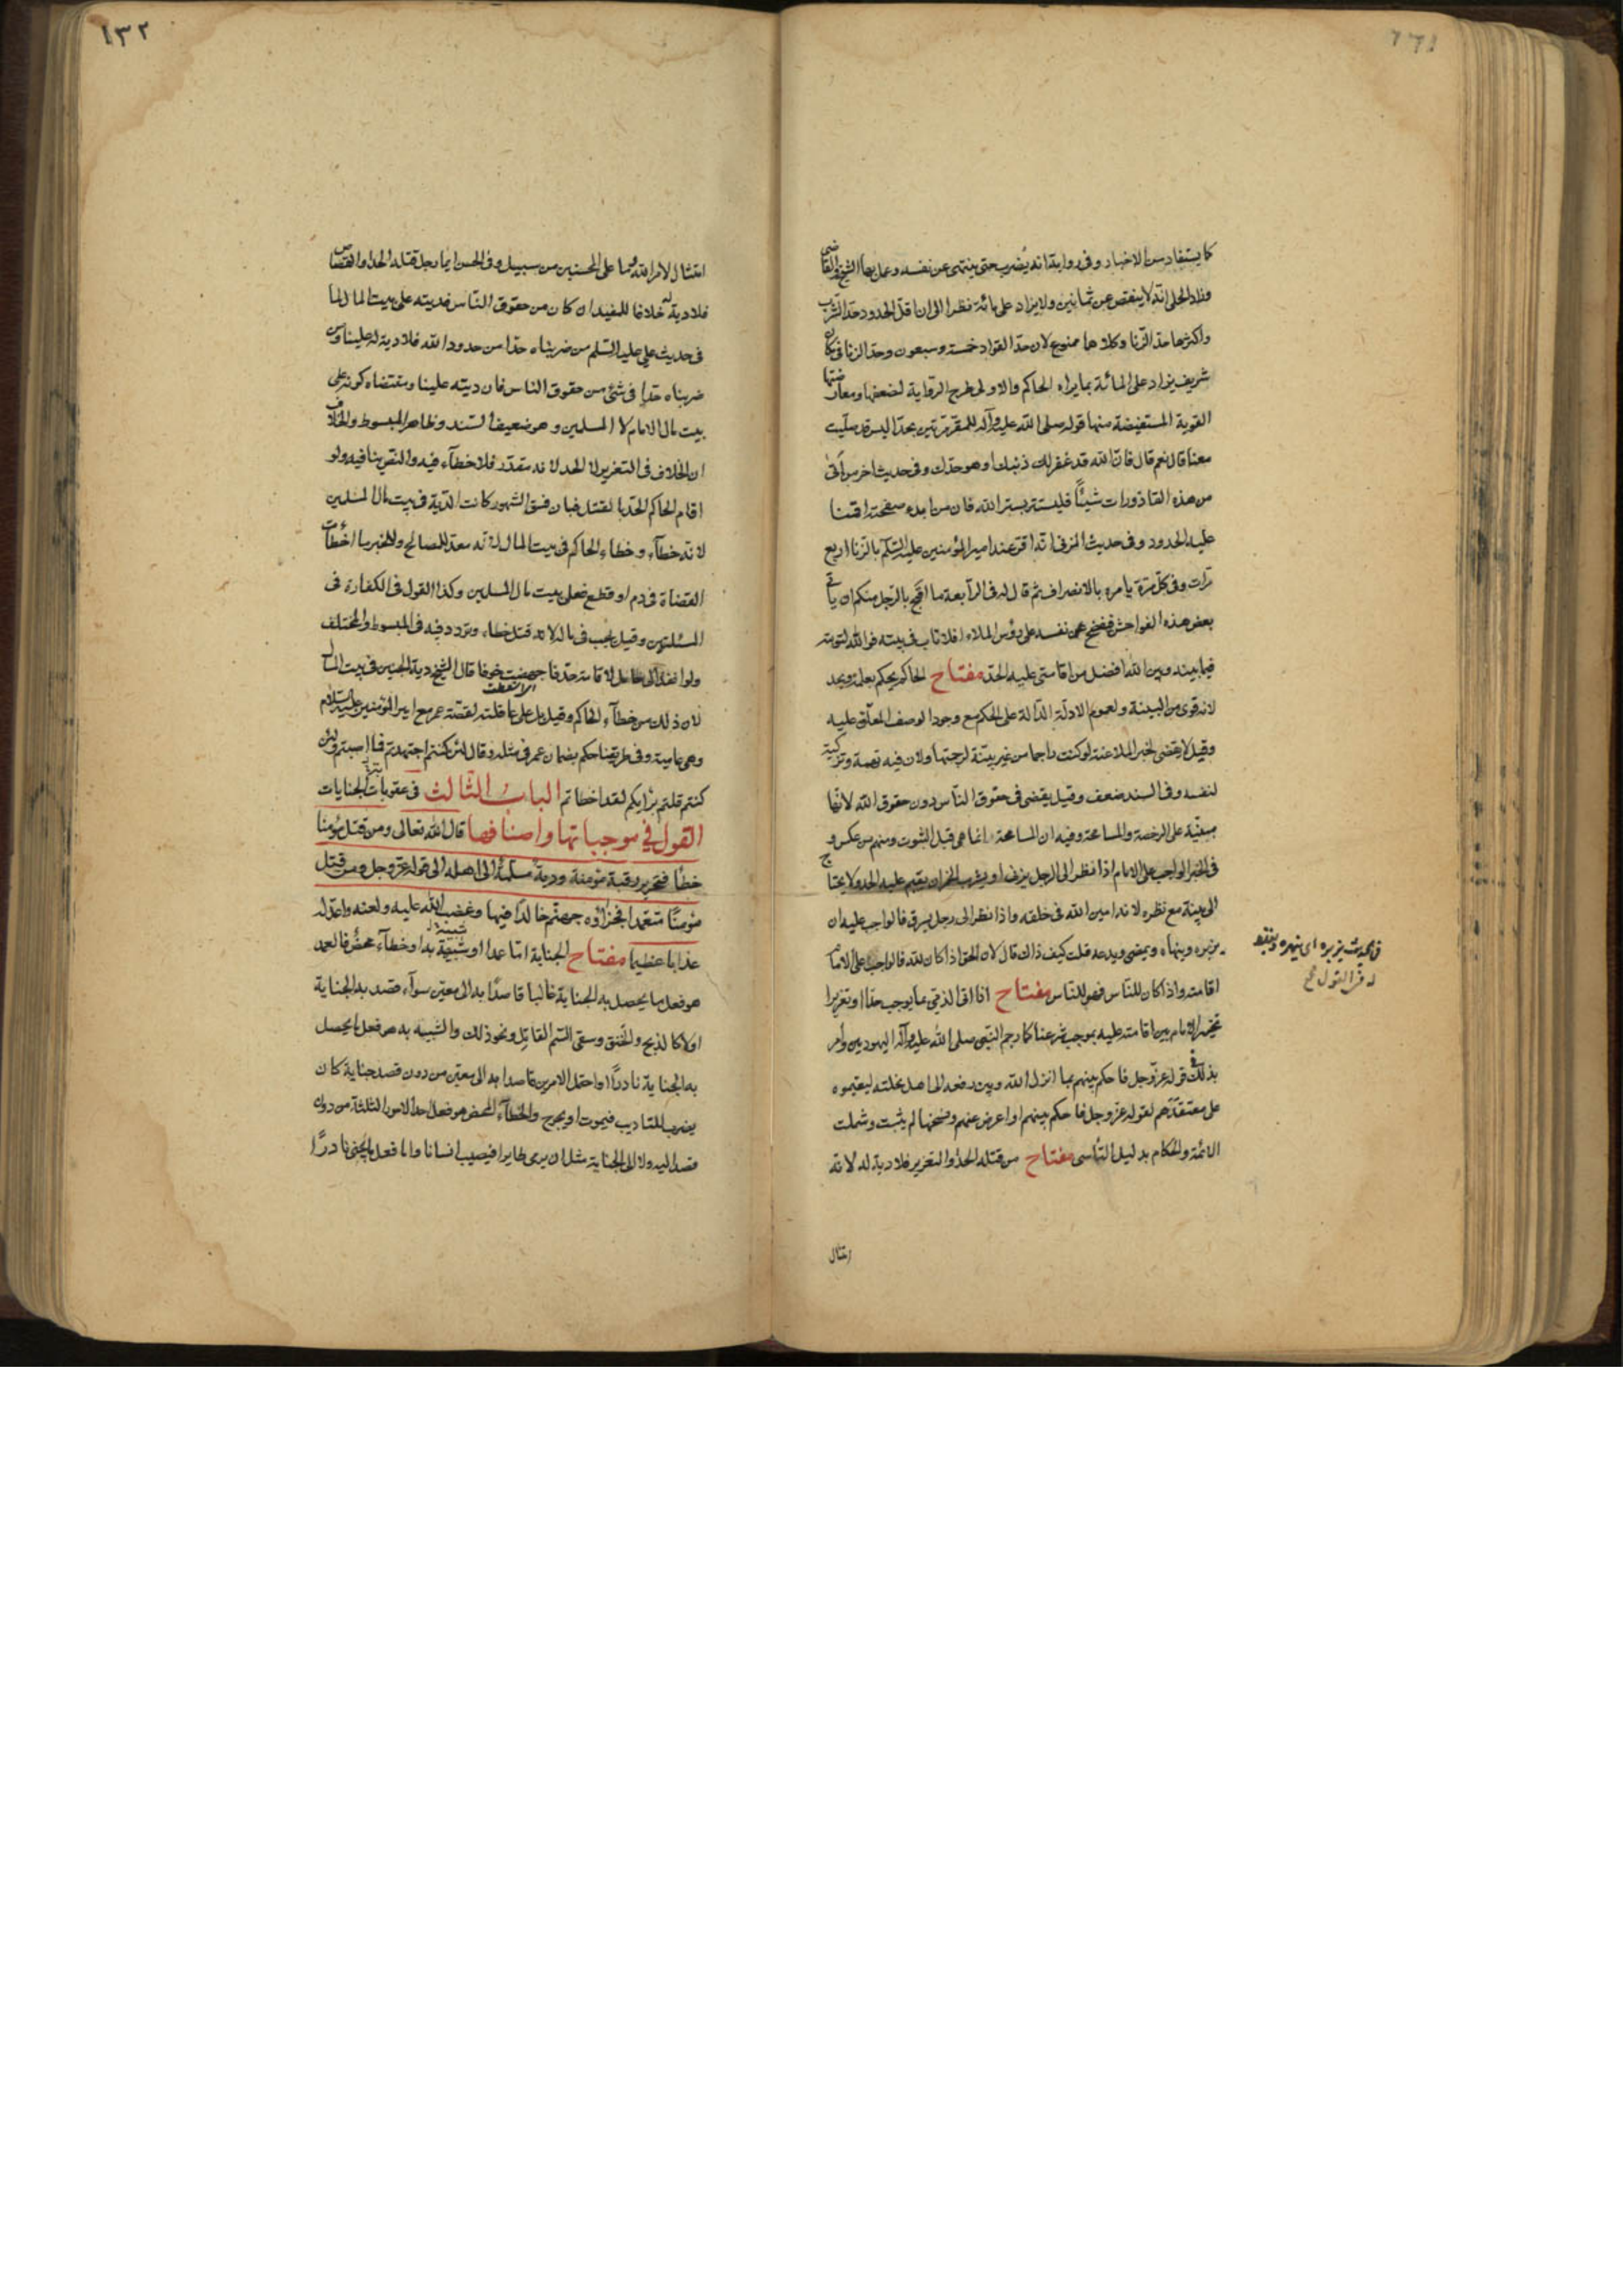 كما يستفاد من الاخبار وفى رواية انه يضرب حتى ينتهى عن نفسه وعمل بها الشيخ والقاضى
وزاد الحلى انه لا ينقص عن ثمانين ولا يزاد على مائة نظرا الى ان اقل الحدود حد الشرب
واكثرها حد الزنا وكلاهما ممنوع لان حد القواد خمسة وسبعون وحد الزنا فى مكان
شريف يزاد على المائة بما يراه الحاكم والاولى طرح الرواية لضعفها ومعارضتها
القوية المستفيضة منها قوله صلى الله عليه وآله للمقر مرتين بحد اليس قد صليت
معنا قال نعم قال فان الله قد غفر لك ذنبك او هو حدك وفى حديث اخر من اتى
من هذه القاذورات شيئا فليستتر بستر الله فان من ابدء صفحته اقمنا
عليه الحدود وفى حديث المزنى انه اقر عند امير المؤمنين عليه السلم بالزنا اربع
مرات وفى كل مرة يامره بالانصراف ثم قال له فى الرابعة ما اقبح بالرجل منكم ان ياتى
بعض هذه الفواحش فيفضح عن نفسه على رؤس الملاء افلا تاب فى بيته فوالله لتوبته
فيما بينه وبين الله افضل من اقامتى عليه الحد مفتاح الحاكم يحكم بعلمه ويحد
لانه قوى من البينة ولعموم الادلة الدالة على الحكم مع وجود الوصف المعلق عليه
وقيل لا يقضى لخبر الملاعنة لو كنت راجما من غير بينة لرجمتها ولان فيه تهمة وتزكية
لنفسه وفى السند ضعف وقيل يقضى فى حقوق الناس دون حقوق الله لانها
مبنية على الرخصة والمسامحة وفيه ان المسامحة انما هى قبل الثبوت ومنهم من عكس و
فى الخبر الواجب على الامام اذا نظر الى الرجل يزنى او يشرب الخمر ان يقيم عليه الحد ولا يحتاج
الى بينة مع نظره لانه امين الله فى خلقه واذا نظر الى رجل يسرق فالواجب عليه ان
يزبره وينهاه ويمضى ويدعه قلت كيف ذاك قال لان الحق اذا كان لله فالواجب على الامام
اقامته واذا كان للناس فهو للناس مفتاح اذا اقر الذمى بما يوجب حدا او تعزيرا
تخير الامام بين اقامته عليه بموجب شرعنا كما رجم النبى صلى الله عليه وآله اليهوديين وامر
بذلك فى قوله عز وجل فاحكم بينهم بما انزل الله وبين دفعه الى اهل نحلته ليقيموه
على معتقدهم لقوله عز وجل فاحكم بينهم او اعرض عنهم ونسخها لم يثبت وشملت
الائمة والحكام بدليل التاسى مفتاح من قتله الحد او التعزير فلا دية له لانه
امتثال
فى الحديث يزبره اى ينهره
له فى القول
١٣٢
امتثال لامر الله وما على المحسنين من سبيل وفى الحسن ايما رجل قتله الحد او القصاص
فلا دية له خلافا للمفيد ان كان من حقوق الناس فديته على بيت المال لما
فى حديث على عليه السلم من ضربناه حدا من حدود الله فلا دية له علينا ومن
ضربناه حدا فى شئ من حقوق الناس فان ديته علينا ومقتضاه كونه على
بيت مال الامام لا المسلمين وهو ضعيف السند وظاهر المبسوط والخلاف
ان الخلاف فى التعزير لا الحد لانه مقدر فلا خطآء فيه والنص ينافيه ولو
اقام الحاكم الحد بالقتل فبان فسق الشهود كانت الدية فى بيت مال المسلمين
لانه خطآء وخطاء الحاكم فى بيت المال لانه معد للمصالح وللخبر ما اخطأت
القضاة فى دم او قطع فعلى بيت مال المسلمين وكذا القول فى الكفارة فى
المسئلتين وقيل يجب فى ماله لانه قتل خطاء وتردد فيه فى المبسوط والمختلف
ولو انفذ الى حامل لاقامة حد فاجهضت خوفا قال الشيخ دية الجنين فى بيت المال
الاسقاط
لان ذلك من خطآء الحاكم وقيل بل على عاقلته لقصة عمر مع امير المؤمنين عليه السلام
وهى عامية وفى طريقنا حكم بضمان عمر فى مثله وقال لئن كنتم اجتهدتم فما اصبتم ولئن
كنتم قلتم برأيكم لقد اخطاتم الباب الثالث فى عقوبات الجنايات
القول في موجباتها واصنافها قال الله تعالى ومن قتل مؤمنا
خطأ فتحرير رقبة مؤمنة ودية مسلمة الى اهله الى قوله عز وجل ومن قتل
مؤمنا متعمدا فجزاؤه جهنم خالدا فيها وغضب الله عليه ولعنه واعد له
عذابا عظيما مفتاح الجناية اما عمدا او شبيه به او خطآء محض فالعمد
هو فعل ما يحصل به الجناية غالبا قاصدا به الى معين سوآء قصد به الجناية
او لا كالذبح والخنق وسقى السم القاتل ونحو ذلك والشبيه به هو فعل ما يحصل
به الجناية نادرا او احتمل الامرين قاصدا به الى معين من دون قصد جناية كان
يضرب للتاديب فيموت او يجرح والخطآء المحض هو فعل احد الامور الثلثة من دون
قصد اليه ولا الى الجناية مثل ان يرمى طايرا فيصيب انسانا واما فعل ما يجنى نادرًا